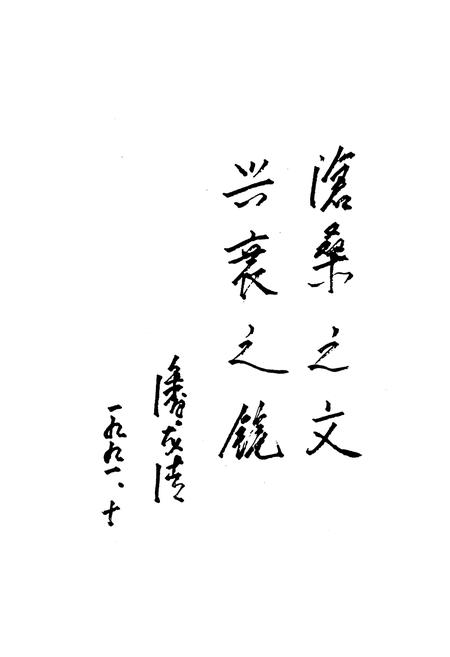 滄桑之文
兴衰之镜
潘友清
一九九一、十